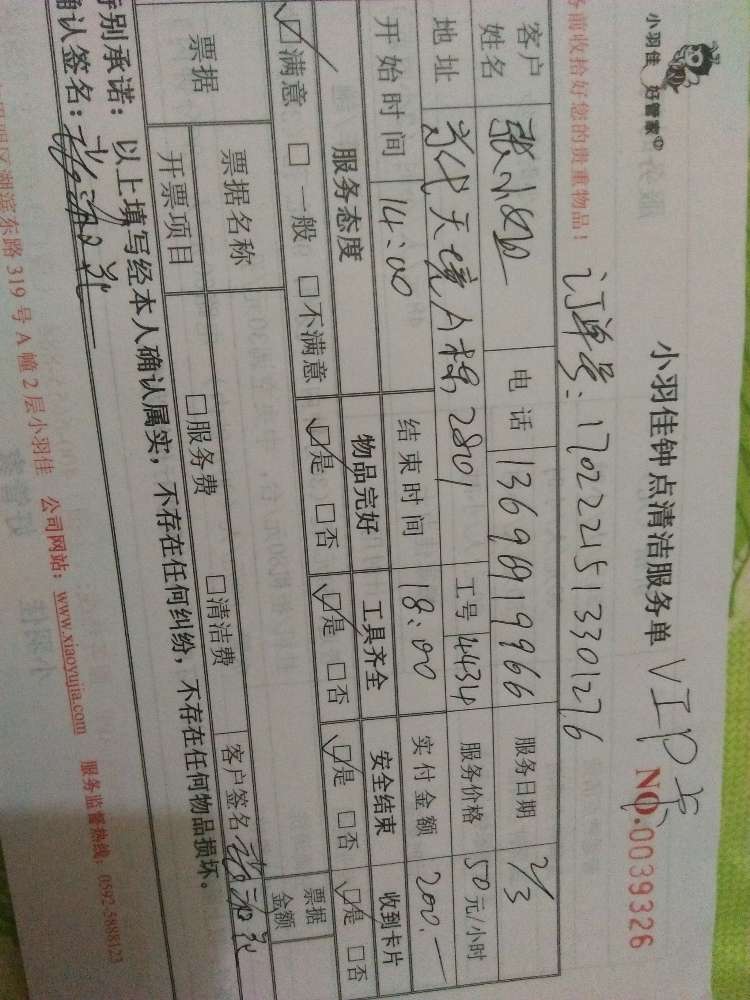 小羽佳 好管家
小羽佳钟点清洁服务单 VIP卡
NO.0039326
务前收拾好您的贵重物品！ 订单号：17022151330127.6
客户姓名 张小姐 电话 13696919966 服务日期 2/3
地址 古代天境A梯2801 工号 4434 服务价格 50元/小时
开始时间 14:00 结束时间 18:00 实付金额 200.—
服务态度 物品完好 工具齐全 安全结束 收到卡片
☑满意 □一般 □不满意 ☑是 □否 ☑是 □否 ☑是 □否 ☑是 □否
票据 票据名称 票据金额
开票项目 □服务费 □清洁费 客户签名
特别承诺：以上填写经本人确认属实，不存在任何纠纷，不存在任何物品损坏。
确认签名：
明区湖滨东路319号A幢2层小羽佳 公司网站：www.xiaoyujia.com 服务监督热线：0592-5888123